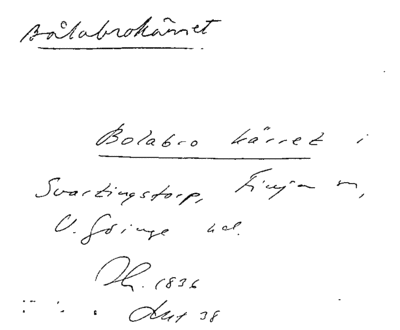 Bålabrokärret
Bolabro kärret i
Svartingstorp, Finja sn,
V. Göinge hd.
1836
38